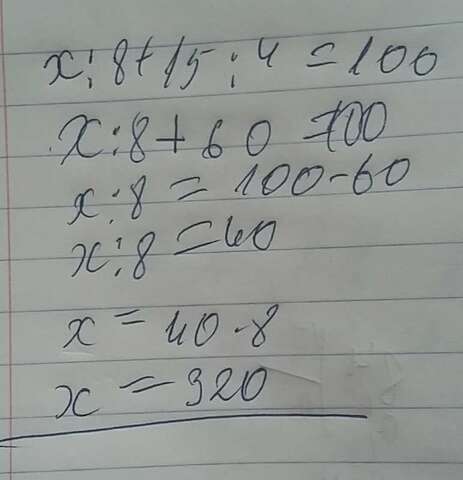 x:8+15:4=100
x:8+60=100
x:8=100-60
x:8=40
x=40·8
x=320